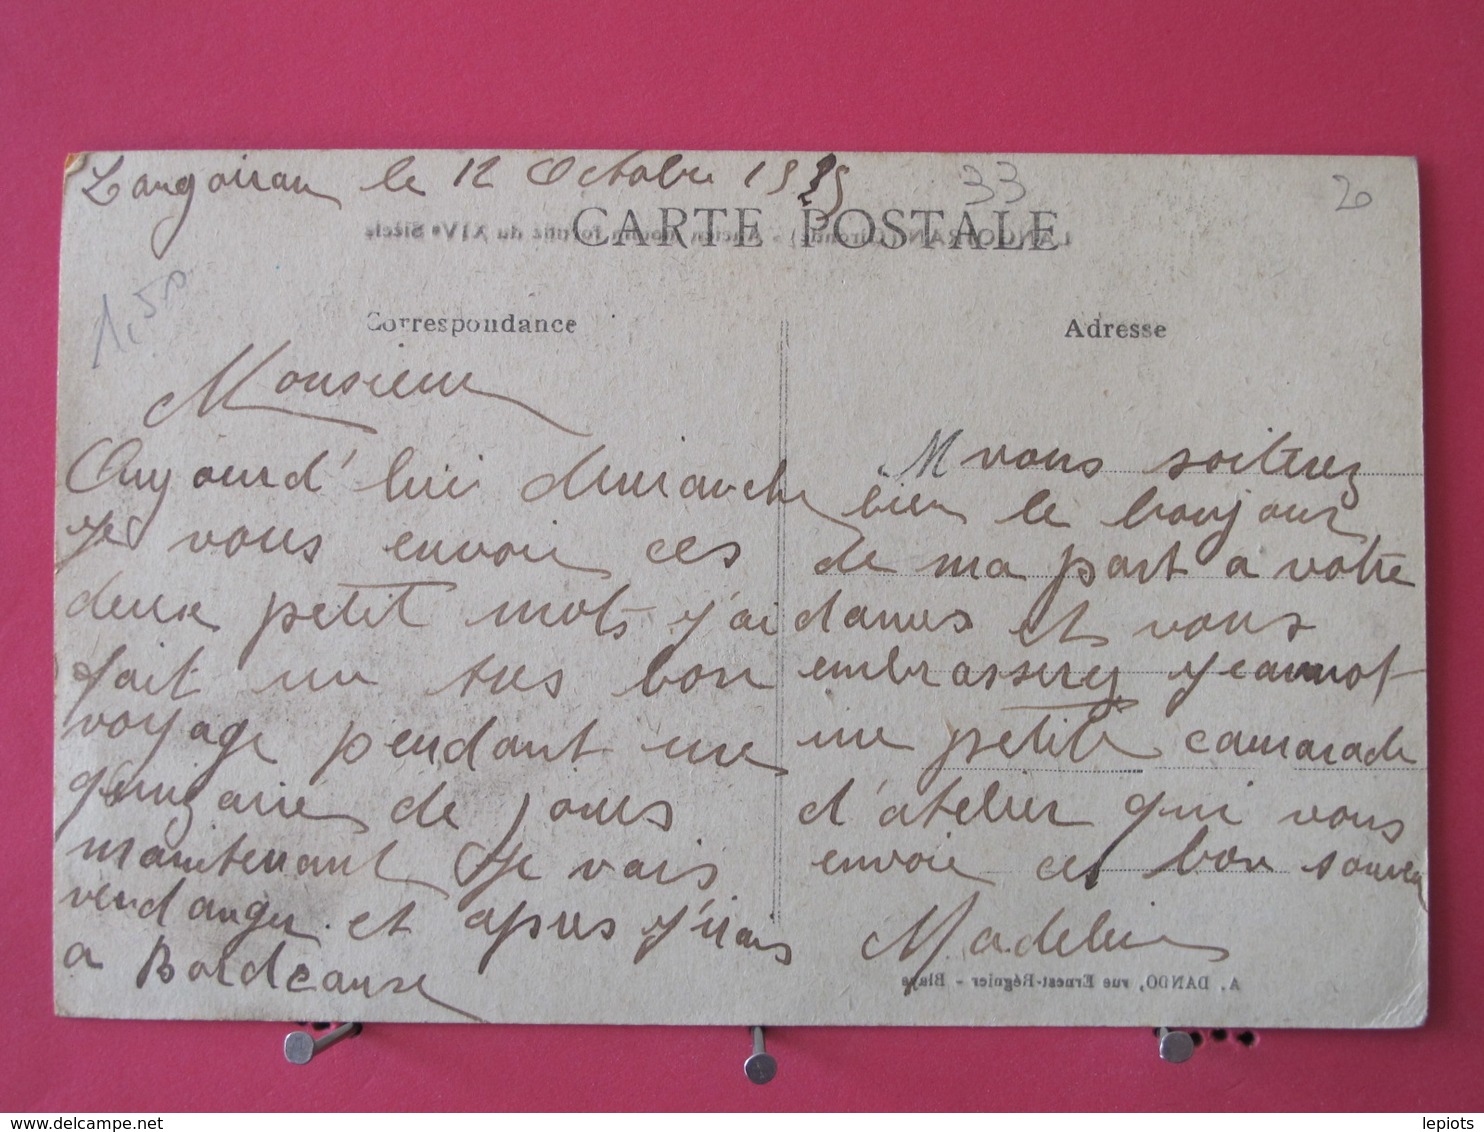 Langoiran le 12 Octobre 19
33
20
CARTE POSTALE
LANGOIRAN (Gironde) - Ancien Moulin fortifié du XIVe Siècle
1,50
Correspondance
Adresse
Monsieur
Aujourd'hui dimanche
je vous envoie ces
deux petit mots j'ai
fait un tres bon
voyage pendant une
quinzaine de jours
maintenant je vais
vendanger et apres j'irais
a Bordeaux
M vous
bien le bonjour
de ma part a votre
dames et vous
embrasserez Jeannot
une petite camarade
d'atelier qui vous
envoie ces bon souvenir
Madeleine
A. DANDO, rue Ernest-Régnier - Blaye
delcampe.net
lepiots